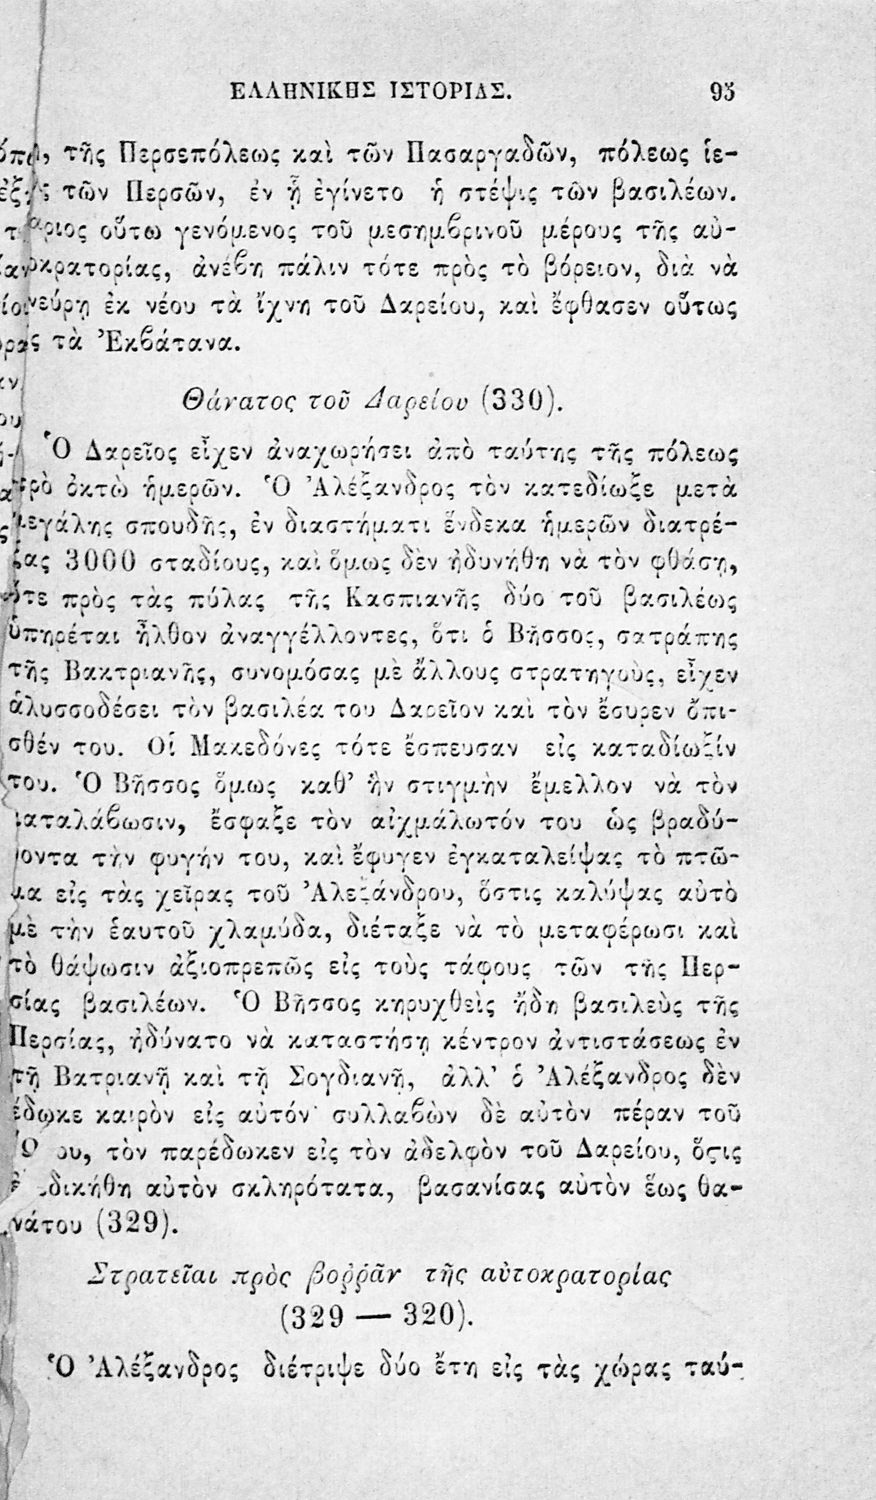 ΕΛΛΗΝΙΚΗΣ ΙΣΤΟΡΙΑΣ. 95
τῆς Περσεπόλεως καὶ τῶν Πασαργαδῶν, πόλεως ἱε-
τῶν Περσῶν, ἐν ᾗ ἐγίνετο ἡ στέψις τῶν βασιλέων.
οὕτω γενόμενος τοῦ μεσημβρινοῦ μέρους τῆς αὐ-
τοκρατορίας, ἀνέβη πάλιν τότε πρὸς τὸ βόρειον, διὰ νὰ
ἐκ νέου τὰ ἴχνη τοῦ Δαρείου, καὶ ἔφθασεν οὕτως
τὰ Ἐκβάτανα.
Θάνατος τοῦ Δαρείου (330).
Ὁ Δαρεῖος εἶχεν ἀναχωρήσει ἀπὸ ταύτης τῆς πόλεως
πρὸ ὀκτὼ ἡμερῶν. Ὁ Ἀλέξανδρος τὸν κατεδίωξε μετὰ
μεγάλης σπουδῆς, ἐν διαστήματι ἕνδεκα ἡμερῶν διατρέ-
ξας 3000 σταδίους, καὶ ὅμως δὲν ἠδυνήθη νὰ τὸν φθάσῃ,
ὅτε πρὸς τὰς πύλας τῆς Κασπιανῆς δύο τοῦ βασιλέως
ὑπηρέται ἦλθον ἀναγγέλλοντες, ὅτι ὁ Βῆσσος, σατράπης
τῆς Βακτριανῆς, συνομόσας μὲ ἄλλους στρατηγοὺς, εἶχεν
ἁλυσσοδέσει τὸν βασιλέα του Δαρεῖον καὶ τὸν ἔσυρεν ὄπι-
σθέν του. Οἱ Μακεδόνες τότε ἔσπευσαν εἰς καταδίωξίν
του. Ὁ Βῆσσος ὅμως καθ’ ἣν στιγμὴν ἔμελλον νὰ τὸν
καταλάβωσιν, ἔσφαξε τὸν αἰχμάλωτόν του ὡς βραδύ-
νοντα τὴν φυγήν του, καὶ ἔφυγεν ἐγκαταλείψας τὸ πτῶ-
μα εἰς τὰς χεῖρας τοῦ Ἀλεξάνδρου, ὅστις καλύψας αὐτὸ
μὲ τὴν ἑαυτοῦ χλαμύδα, διέταξε νὰ τὸ μεταφέρωσι καὶ
τὸ θάψωσιν ἀξιοπρεπῶς εἰς τοὺς τάφους τῶν τῆς Περ-
σίας βασιλέων. Ὁ Βῆσσος κηρυχθεὶς ἤδη βασιλεὺς τῆς
Περσίας, ἠδύνατο νὰ καταστήσῃ κέντρον ἀντιστάσεως ἐν
τῇ Βατριανῇ καὶ τῇ Σογδιανῇ, ἀλλ’ ὁ Ἀλέξανδρος δὲν
ἔδωκε καιρὸν εἰς αὐτόν· συλλαβὼν δὲ αὐτὸν πέραν τοῦ
τὸν παρέδωκεν εἰς τὸν ἀδελφὸν τοῦ Δαρείου, ὅϛις
ἐξεδικήθη αὐτὸν σκληρότατα, βασανίσας αὐτὸν ἕως θα-
νάτου (329).
Στρατεῖαι πρὸς βοῤῥᾶν τῆς αὐτοκρατορίας
(329 — 320).
Ὁ Ἀλέξανδρος διέτριψε δύο ἔτη εἰς τὰς χώρας ταύ-